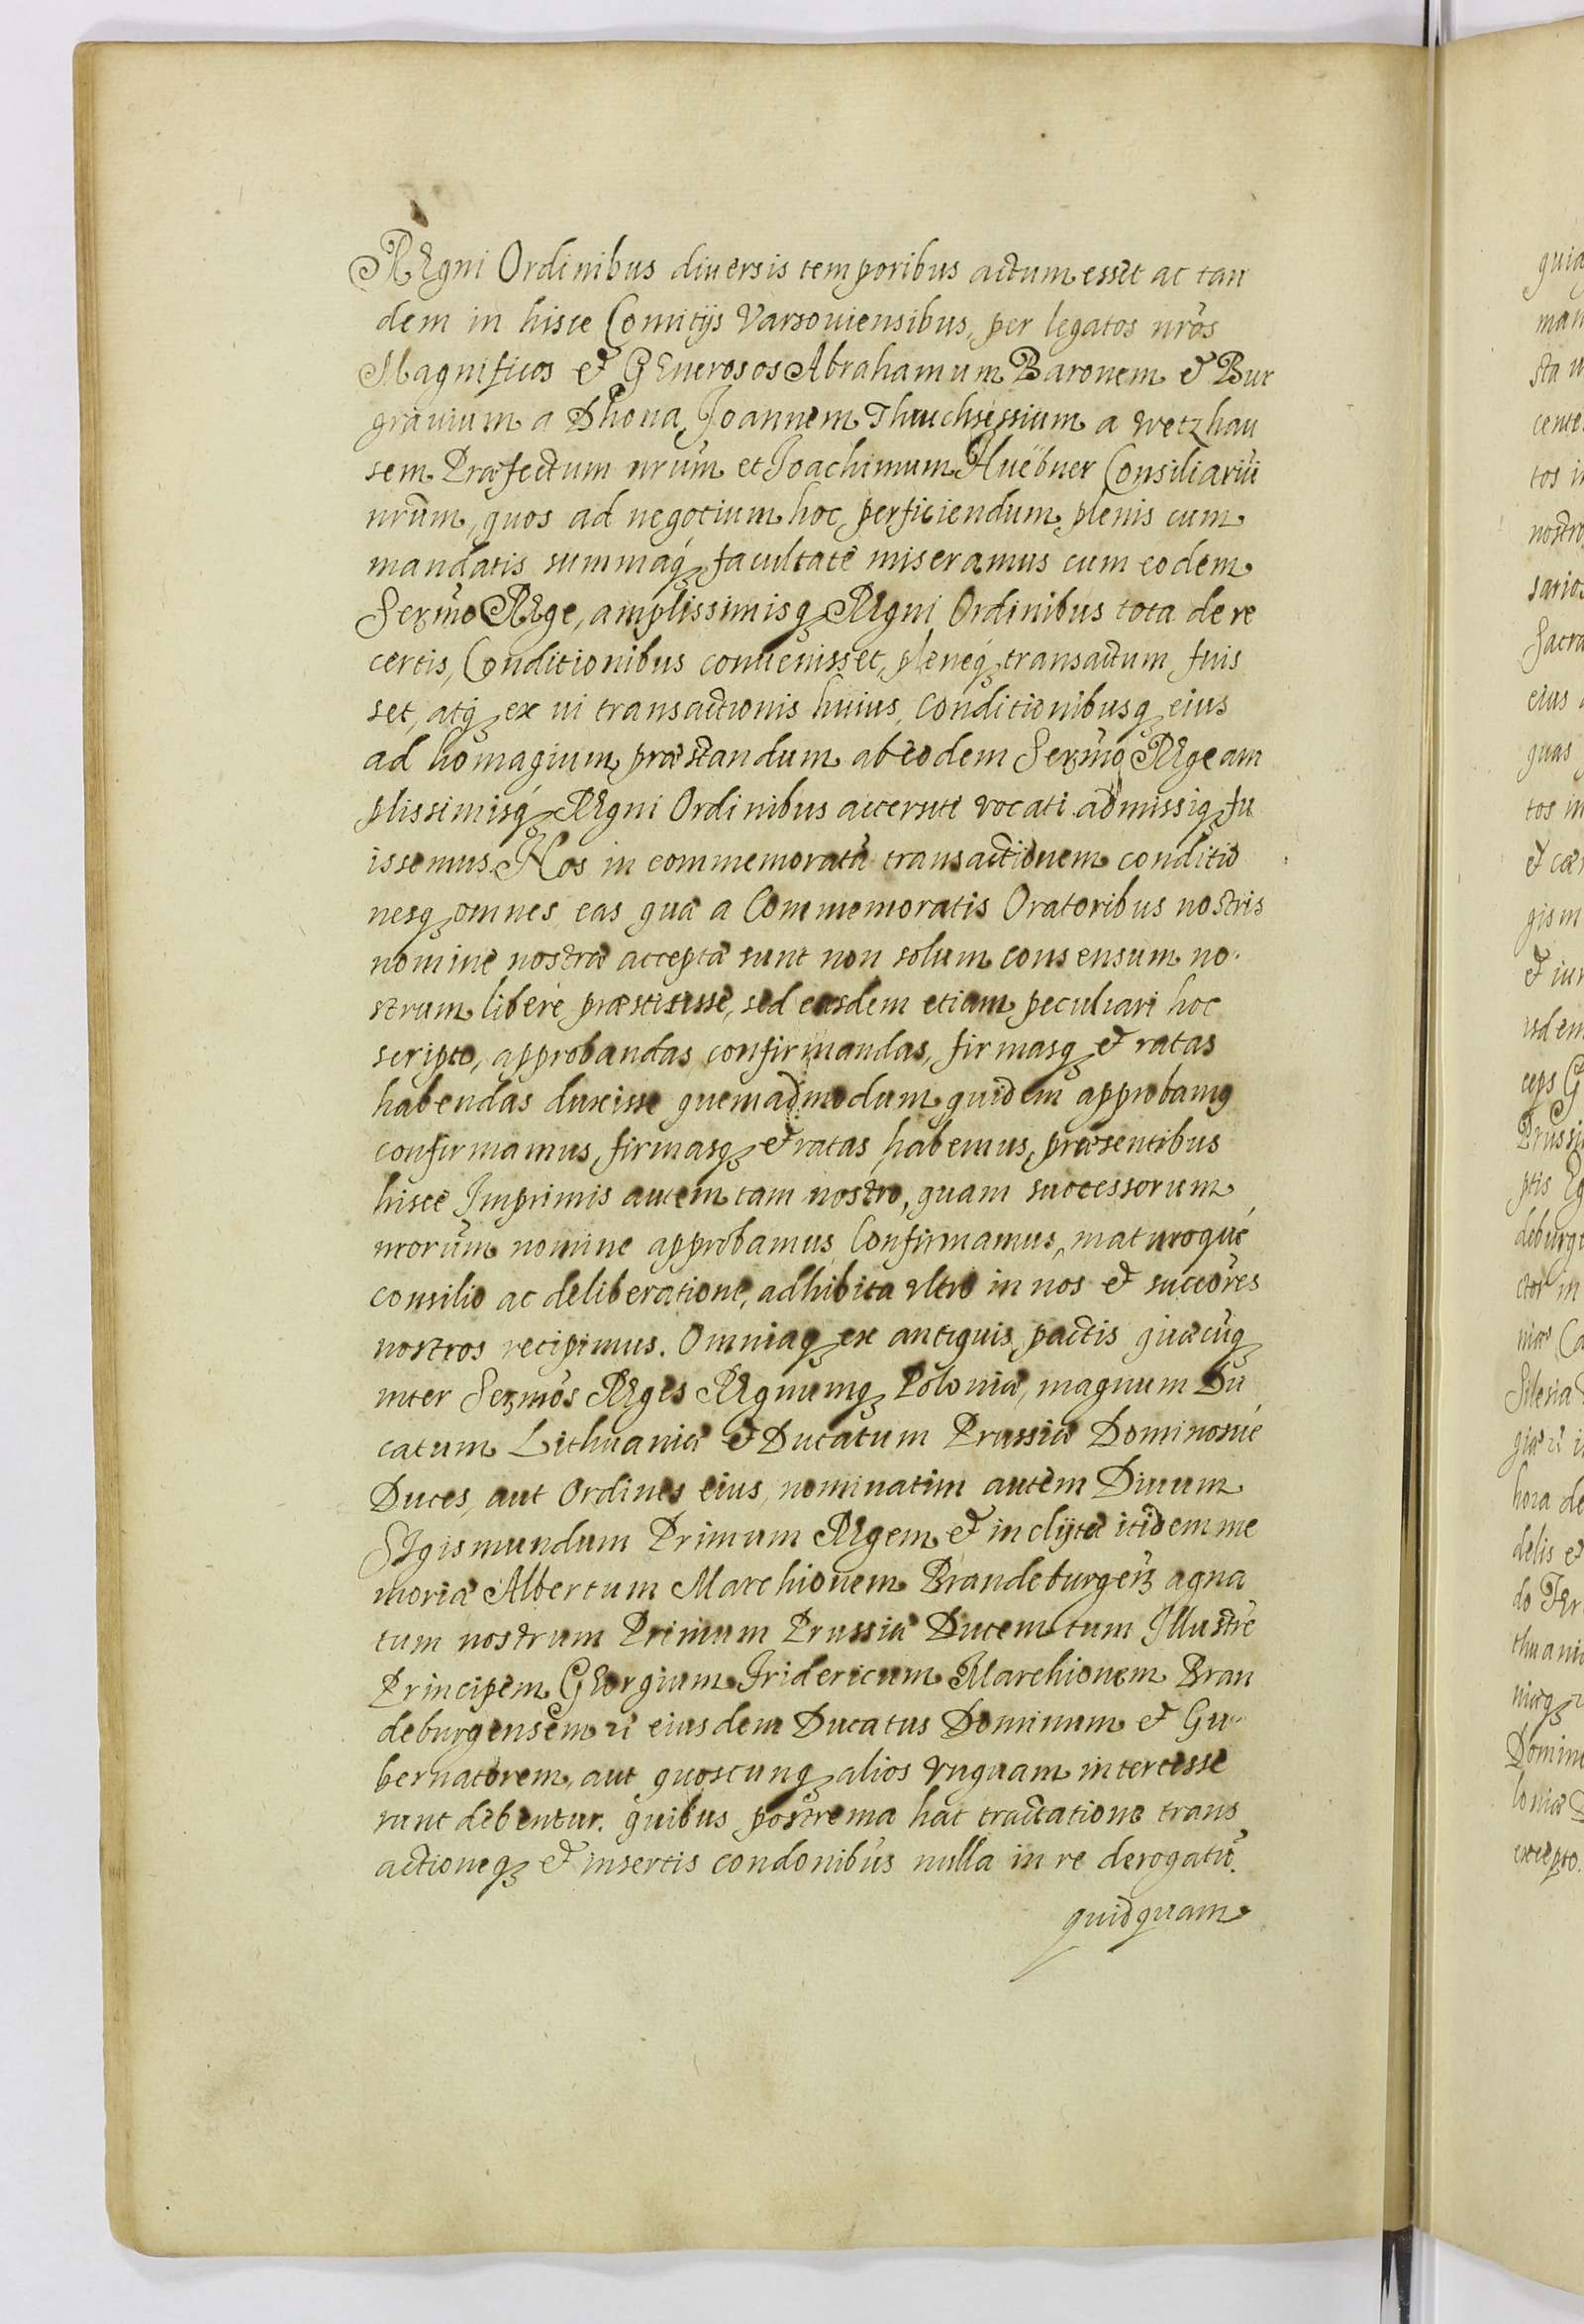 REgni Ordinibus diuersis temporibus actum esset ac tan
dem in hisce Comitijs Varsouiensibus, per legatos nrõs
Magnificos et GEnerosos Abrahamum Baronem et Bur
grauium a Dhona, Joannem Thruchsessium a Wetzhau
sem Præfectum nrum̃ et Joachimum Huëbner Consiliariũ
nrũm, quos ad negotium hoc perficiendum plenis cum
mandatis summaq́ꝫ facultate miseramus cum eodem
Serm̃o REge, amplissimisqꝫ REgni Ordinibus tota de re
certis, Conditionibus conuenisset, pleneq́ꝫ transactum fuis
set, atqꝫ ex ui transactionis huius, Conditionibusqꝫ eius
ad homagium præstandum ab eodem Serm̃o REge am
plissimisq́ꝫ REgni Ordinibus accersiti vocati admissiqꝫ fu
issemus. Nos in commemoratã transactionem conditio
nesqꝫ omnes eas quæ a Commemoratis Oratoribus nostris
nomine nostræ acceptæ sunt non solum consensum no-
strum libere præstitisse, sed easdem etiam peculiari hoc
scripto, approbandas, confirmandas, firmasqꝫ et ratas
habendas duxisse quemadmodum quidem approbamꝯ
confirmamus, firmasqꝫ et ratas habemus, præsentibus
hisce Imprimis autem tam nostro, quam successorum
nrorũm nomine approbamus Confirmamus, maturoque
consilio ac deliberatione, adhibita vltro in nos et succõres
nostros recipimus. Omniaqꝫ ex antiquis pactis quæcũqꝫ
inter Serm̃os REges REgnumqꝫ Poloniæ, magnum Du
catum Lithuaniæ et Ducatum Prussiæ Dominosue
Duces, aut Ordines eius, nominatim autem Diuum
SIgismundum Primum REgem et inclytæ itidem me
moriæ Albertum Marchionem Brandeburgenꝫ agna
tum nostrum Primum Prussiæ Ducem tum Illustrẽ
Principem GEorgium Fridericum Marchionem Bran
deburgensem ꝛc̃ eiusdem Ducatus Dominum et Gu-
bernatorem, aut quoscunqꝫ alios vnquam intercesse
runt debentur. quibus postrema hac tractatione trans
actioneqꝫ et insertis condonibũs nulla in re derogatũ.
quidquam